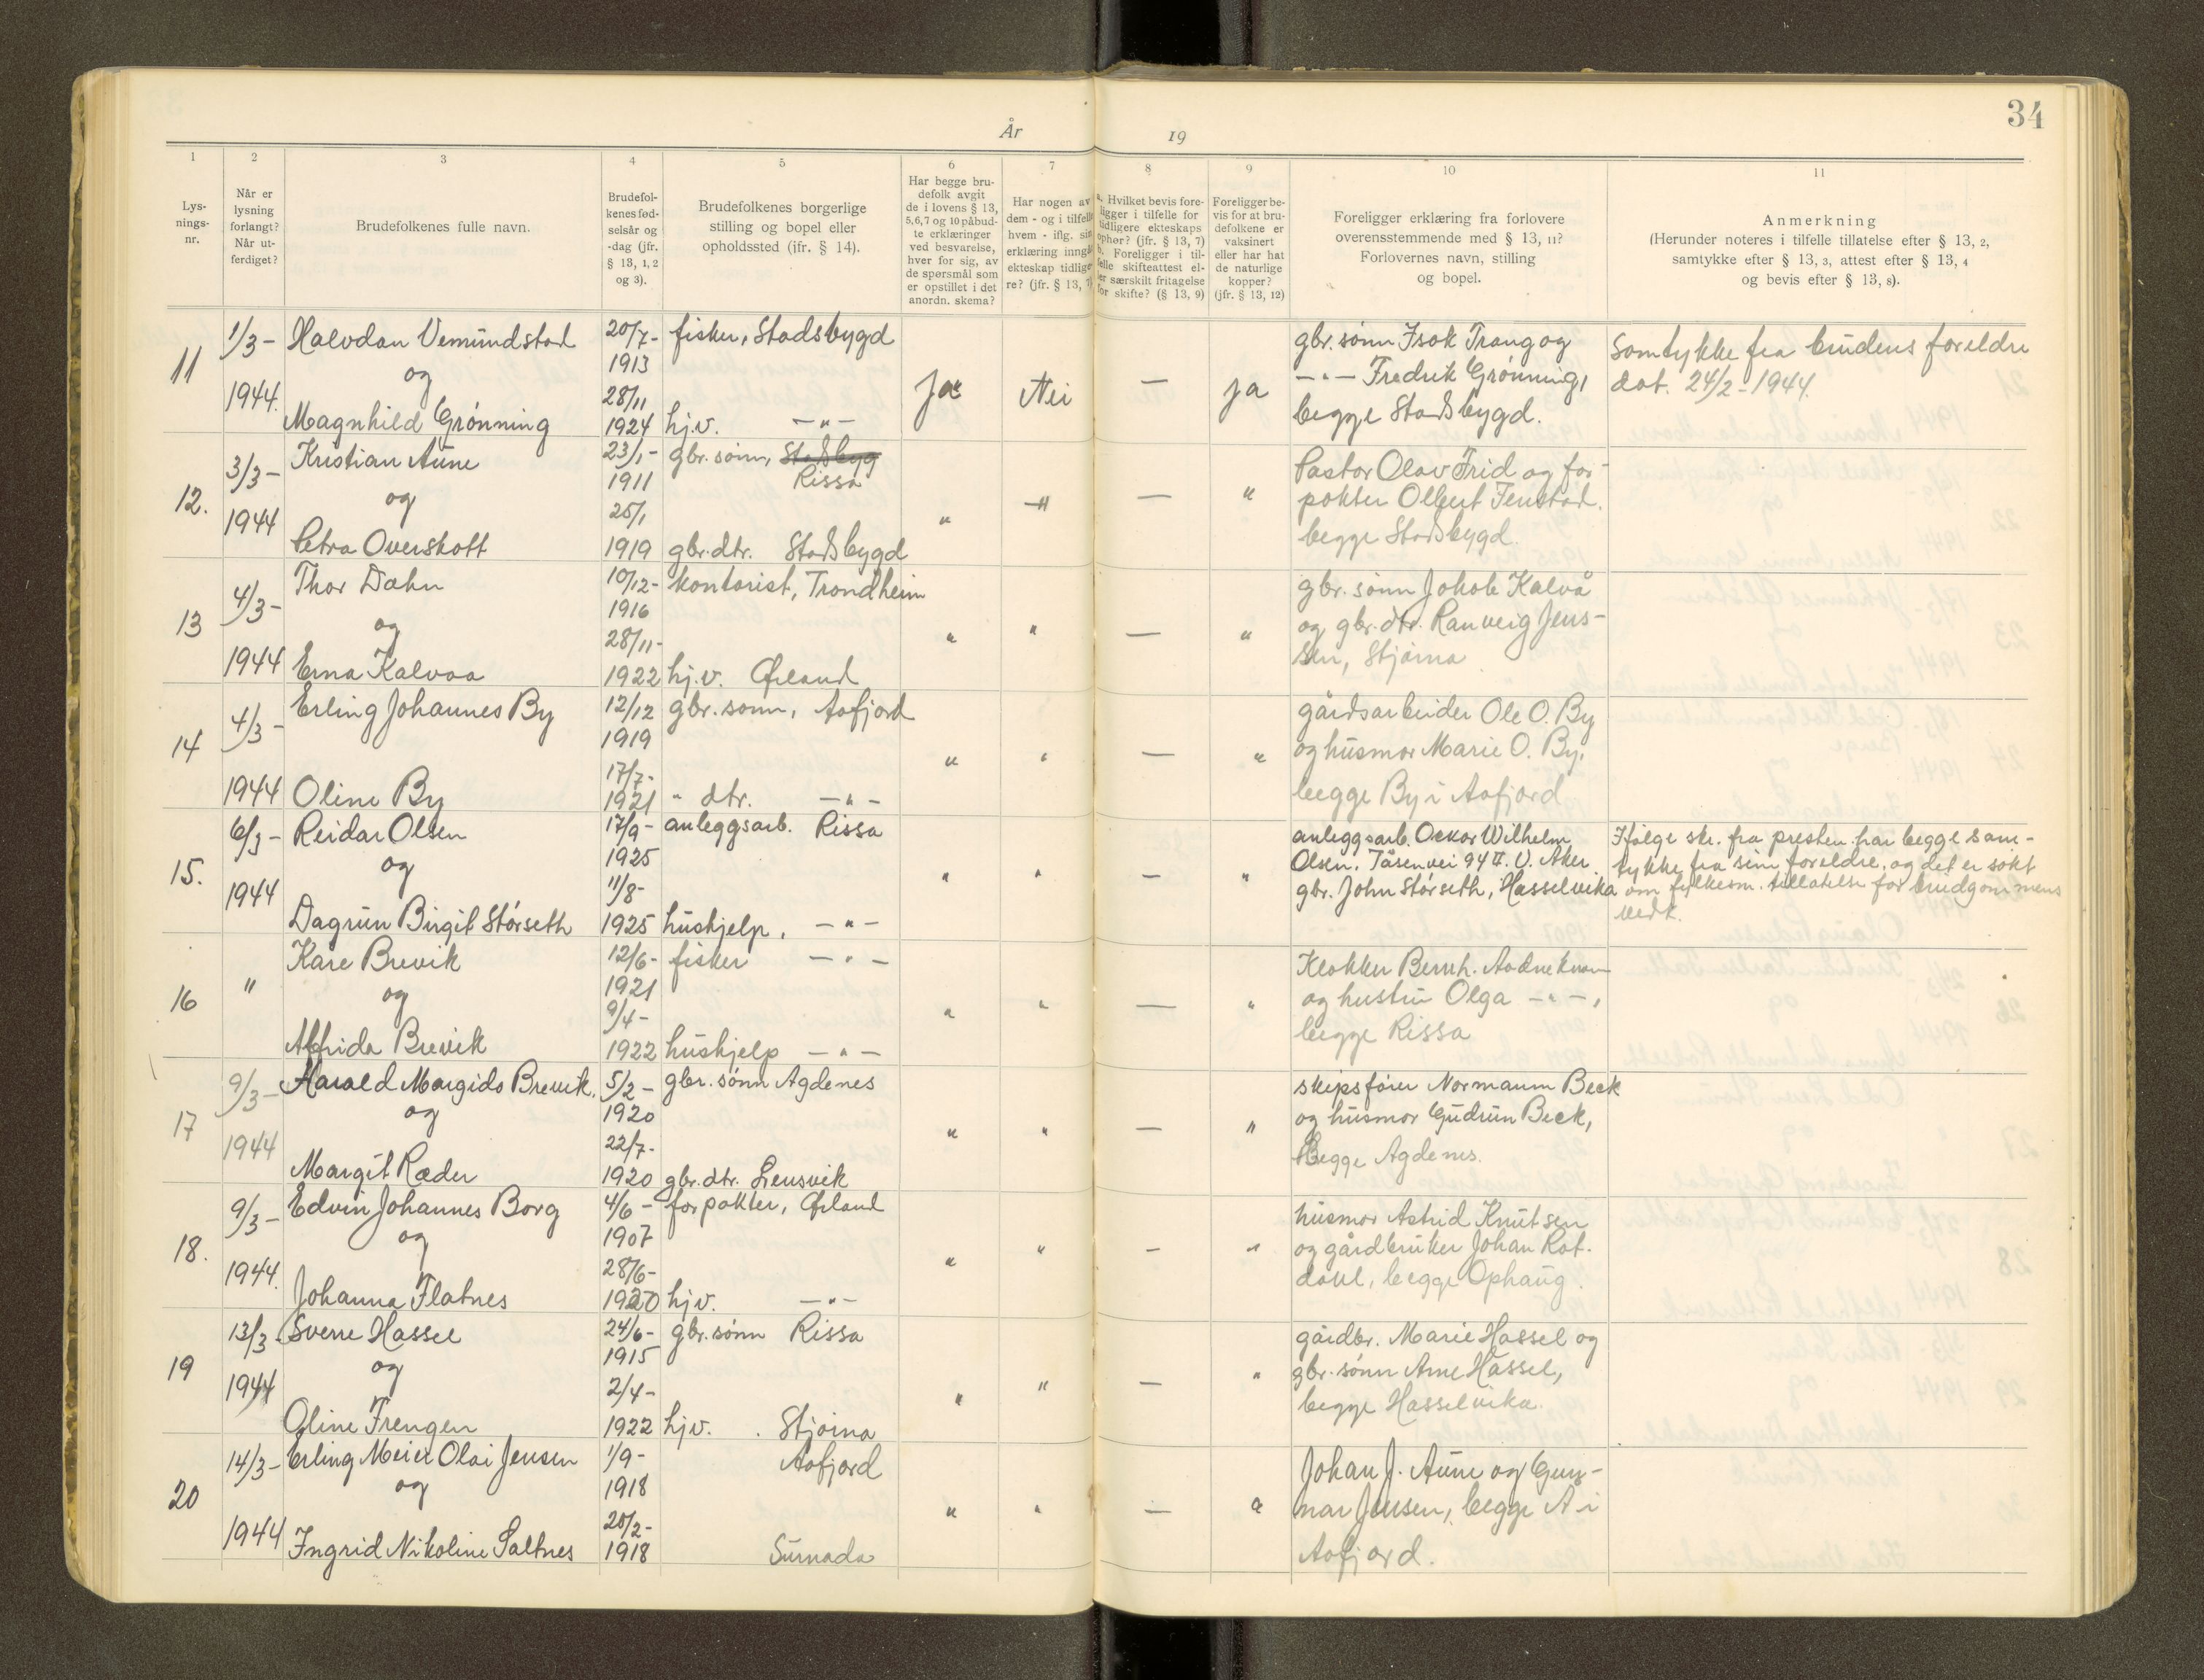 34
År 19
1
Lys-
nings-
nr.
2
Når er
lysning
forlangt?
Når ut-
ferdiget?
3
Brudefolkenes fulle navn.
4
Brudefol-
kenes fød-
selsår og
-dag (jfr.
§ 13, 1, 2
og 3).
5
Brudefolkenes borgerlige
stilling og bopel eller
opholdssted (ifr. § 14).
6
Har begge bru-
defolk avgit
de i lovens § 13,
5,6,7 og 10 påbud-
te erklæringer
ved besvarelse,
hver for sig, av
de spørsmål som
er opstillet i det
anordn. skema?
7
Har nogen av
dem - og i tilfelle
hvem - iflg. sin
erklæring inngå
ekteskap tidlige-
re? (jfr. § 13, 7)
8
a. Hvilket bevis fore-
ligger i tilfelle for
tidligere ekteskaps
ophør? (jfr. § 13, 7)
b. Foreligger i til-
felle skifteattest el-
er særskilt fritagelse
for skifte? (§ 13, 9)
9
Foreligger be-
vis for at bru-
defolkene er
vaksinert
eller har hat
de naturlige
kopper?
(jfr. § 13, 12)
10
Foreligger erklæring fra forlovere
overensstemmende med § 13, 11?
Forlovernes navn, stilling
og bopel.
11
Anmerkning
(Herunder noteres i tilfelle tillatelse efter § 13, 2,
samtykke efter § 13, 3, attest efter § 13, 4
og bevis efter § 13, 8).
11
1/3-
1944.
Halvdan Vemundstad
og
Magnhild Grønning
20/7-
1913
28/11
1924
fisker, Stadsbygd
hj.v. -"-
Ja
Nei
—
ja
gbr. sønn Isak Trang og
-"- Fredrik Grønning,
begge Stadsbygd.
Samtykke fra brudens foreldre
dat. 24/2-1944.
12.
3/3-
1944
Kristian Aune
og
Petra Overskott
23/1-
1911
25/1
1919
gbr. sønn, Stadsbyg
Rissa
gbr. dtr. Stadsbygd
"
"
—
"
Pastor Olav Frid og for-
pakter Olbert Fenstad.
begge Stadsbygd.
13
4/3-
1944
Thor Dahn
og
Erna Kalvaa
10/12-
1916
28/11-
1922
kontorist, Trondheim
hj.v. Ørland
"
"
—
"
gbr. sønn Jakob Kalvå
og gbr. dtr. Ranveig Jens-
sen, Stjørna
14
4/3-
1944
Erling Johannes By
Oline By
12/12
1919
17/7-
1921
gbr. sønn, Aafjord
" dtr. -"-
"
"
—
"
gårdsarbeider Ole O. By
og husmor Marie O. By,
begge By i Aafjord
15.
6/3-
1944
Reidar Olsen
og
Dagrun Birgit Størseth
17/9-
1925
11/8-
1925
anleggsarb. Rissa
hushjelp, -"-
"
"
—
"
anleggsarb. Oskar Wilhelm
Olsen, Tåsenvei 94 II. V. Aker
gbr. John Størseth, Hasselvika
Ifølge skr. fra presten har begge sam-
tykke fra sine foreldre, og det er søkt
om fylkesm. tillatelse for brudgommens
vedk.
16
"
Kåre Brevik
og
Alfrida Brevik
12/6-
1921
9/4-
1922
fisker -"-
hushjelp -"-
"
"
—
"
Klokker Bernh.
og hustru Olga -"-,
begge Rissa
17
9/3-
1944
Harald Margido Brevik.
og
Margit Ræder
5/2-
1920
22/7-
1920
gbr. sønn Agdenes
gbr. dtr. Lensvik
"
"
—
"
skipsfører Normann Beck
og husmor Gudrun Beck,
Begge Agdenes.
18.
9/3-
1944.
Edvin Johannes Borg
og
Johanna Flatnes
4/6-
1907
28/6-
1920
forpakter, Ørland
hj.v. -"-
"
"
—
"
husmor Astrid Knutsen
og gårdbruker Johan Rot-
dahl, begge Ophaug.
19
13/3-
1944
Sverre Hassel
og
Oline Frengen
24/6-
1915
2/4-
1922
gbr. sønn Rissa
hj.v. Stjørna
"
"
—
"
gårdbr. Marie Hassel og
gbr. sønn Arne Hassel,
begge Hasselvika.
20
14/3-
1944
Erling Meier Olai Jensen
og
Ingrid Nikoline Saltnes
1/9-
1918
20/2-
1918
Aafjord
Surnada
"
"
—
"
Johan J. Aune og Gun-
nar Jensen, begge Å i
Aafjord.